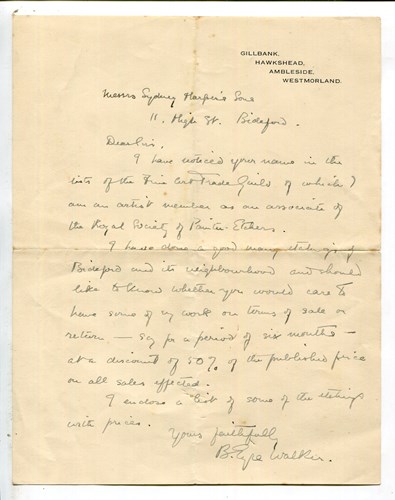 GILLBANK,
HAWKSHEAD,
AMBLESIDE,
WESTMORLAND.
Messrs Sydney Harper & Sons
11. High St. Bideford.
Dear Sirs.
I have noticed your name in the
lists of the Fine Art Trade Guild of which I
am an artist member as an associate of
the Royal Society of Painter-Etchers.
I have done a good many etchings of
Bideford and its neighbourhood and should
like to know whether you would care to
have some of my work on terms of sale or
return — say for a period of six months —
at a discount of 50% of the published price
on all sales effected.
I enclose a list of some of the etchings
with prices.
Yours faithfully
B. Eyre Walker.